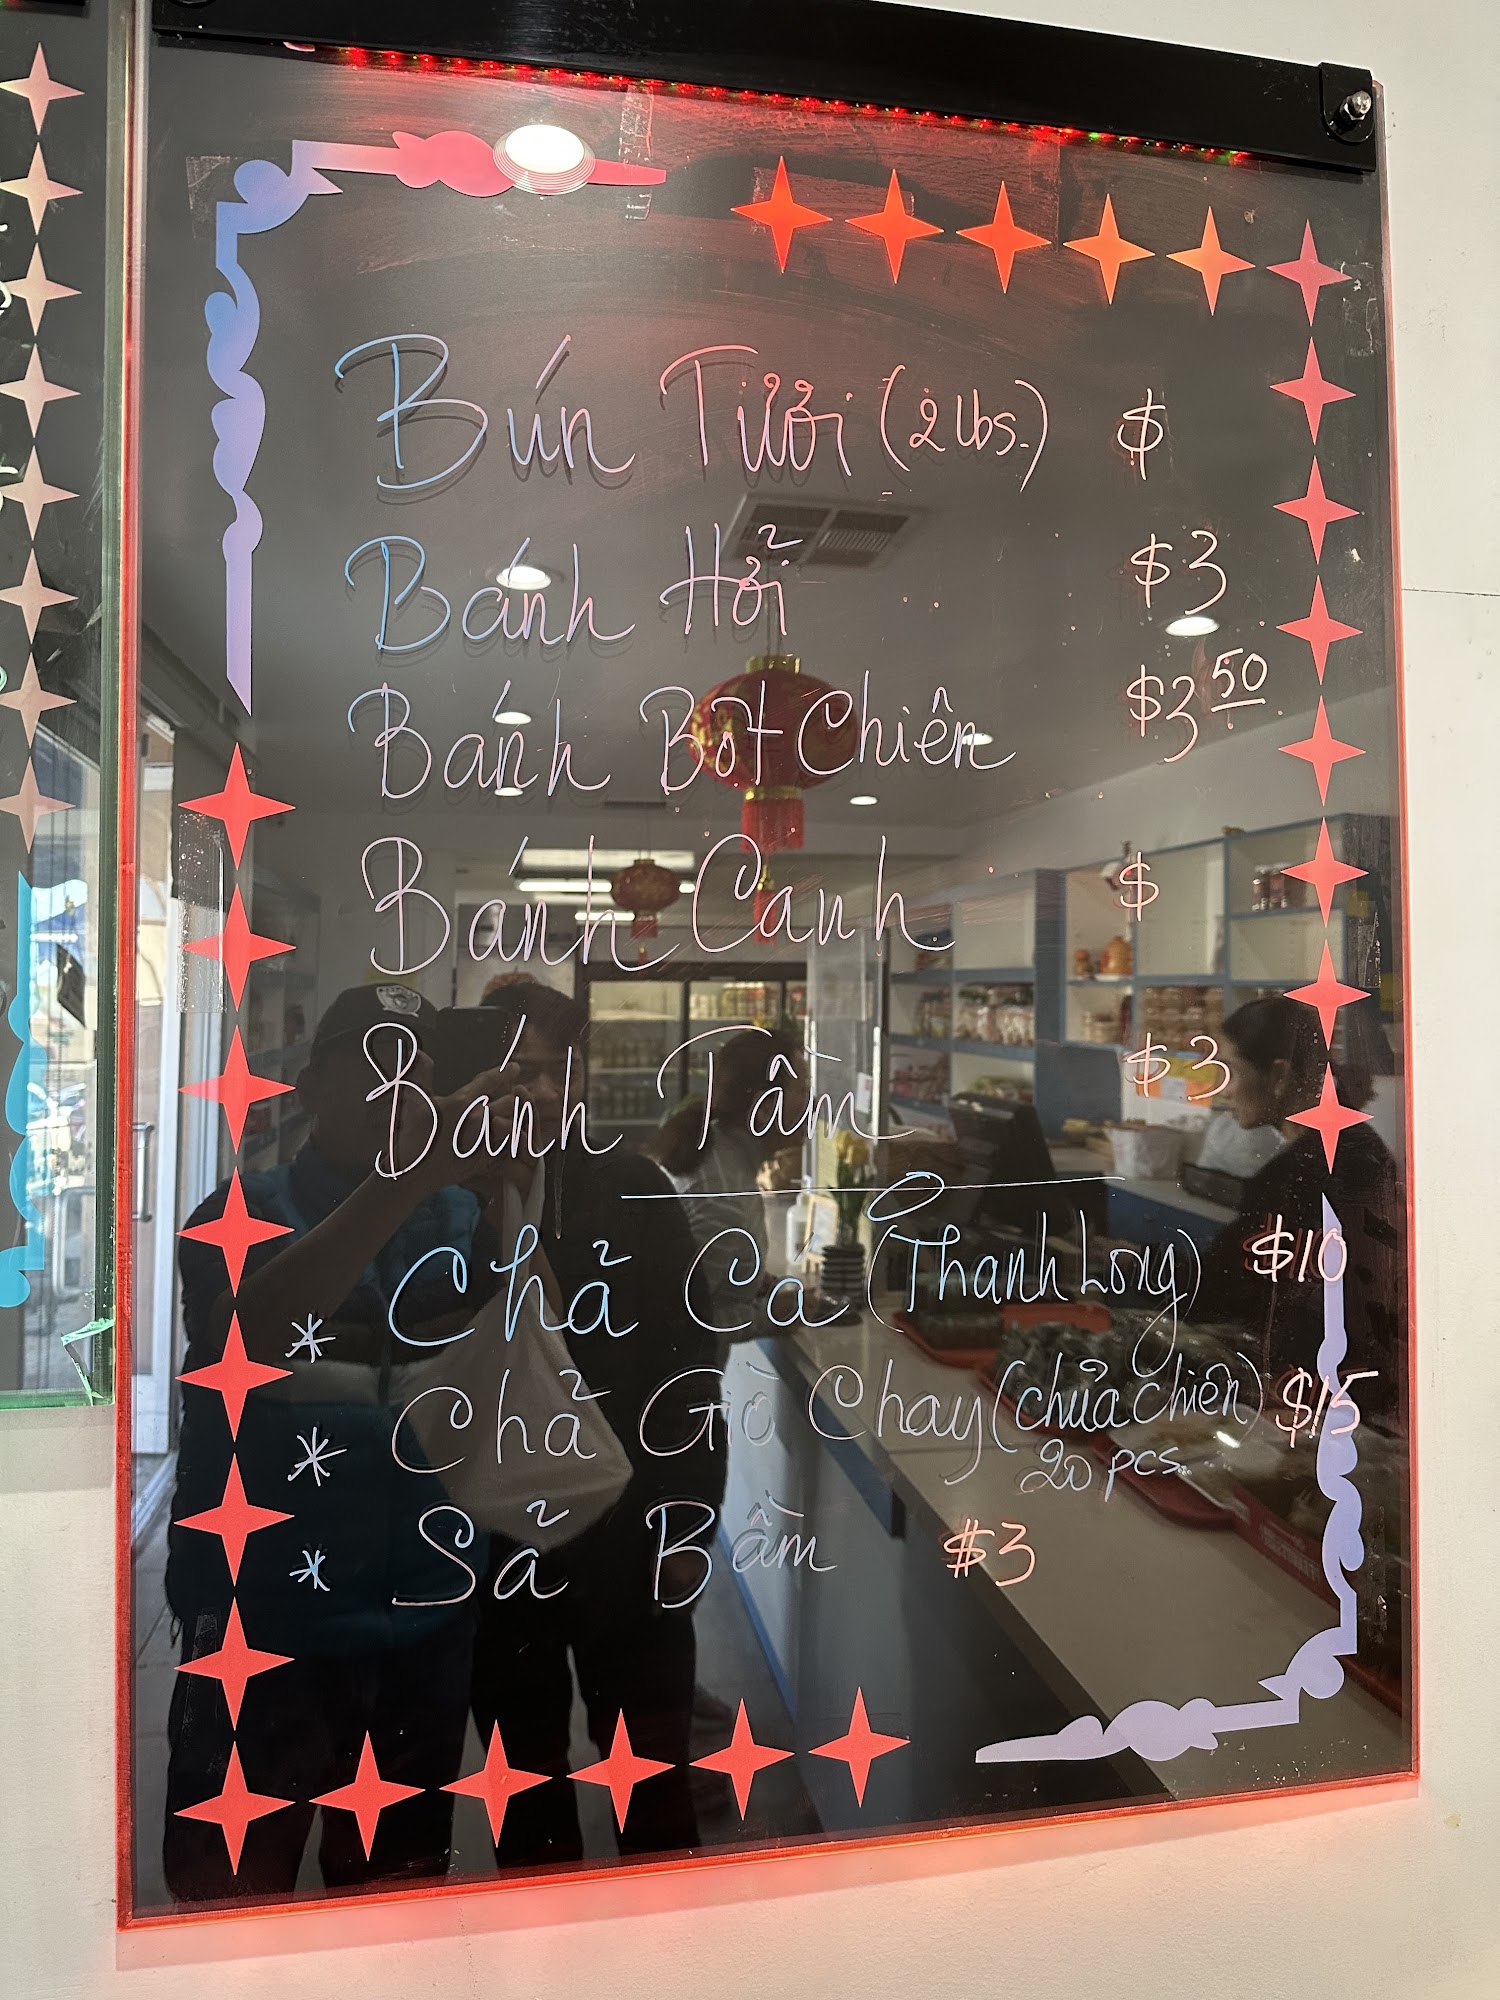 Bún Tươi (2 lbs.) $
Bánh Hỏi $3
Bánh Bột Chiên $3 50
Bánh Canh $
Bánh Tầm $3
* Chả Cá (Thanh Long) $10
* Chả Giò Chay (chưa chiên) $15
20 pcs.
* Sả Bầm $3